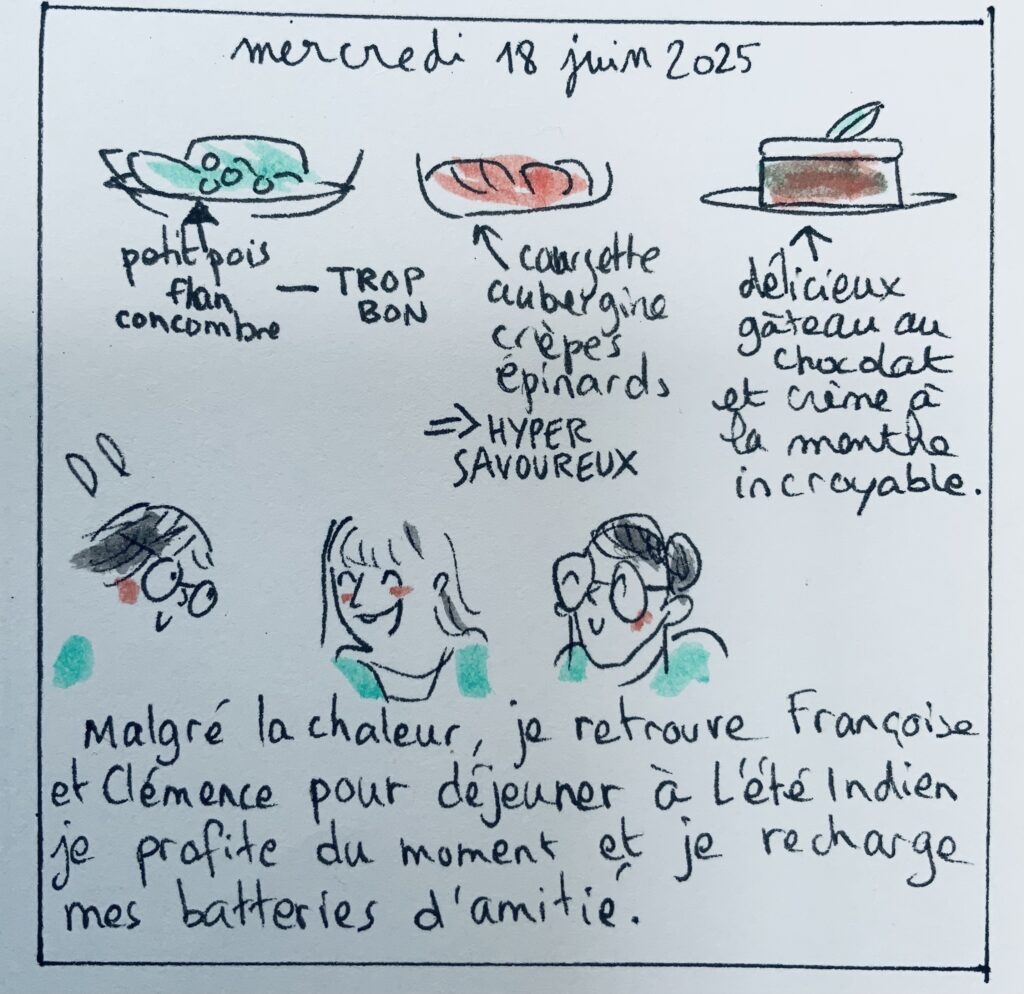 mercredi 18 juin 2025
petit pois
flan
concombre
— TROP
BON
courgette
aubergine
crèpes
épinards
=> HYPER
SAVOUREUX
délicieux
gâteau au
chocolat
et crème à
la menthe
incroyable.
Malgré la chaleur, je retrouve Françoise
et Clémence pour déjeuner à L'été Indien
je profite du moment et je recharge
mes batteries d'amitié.